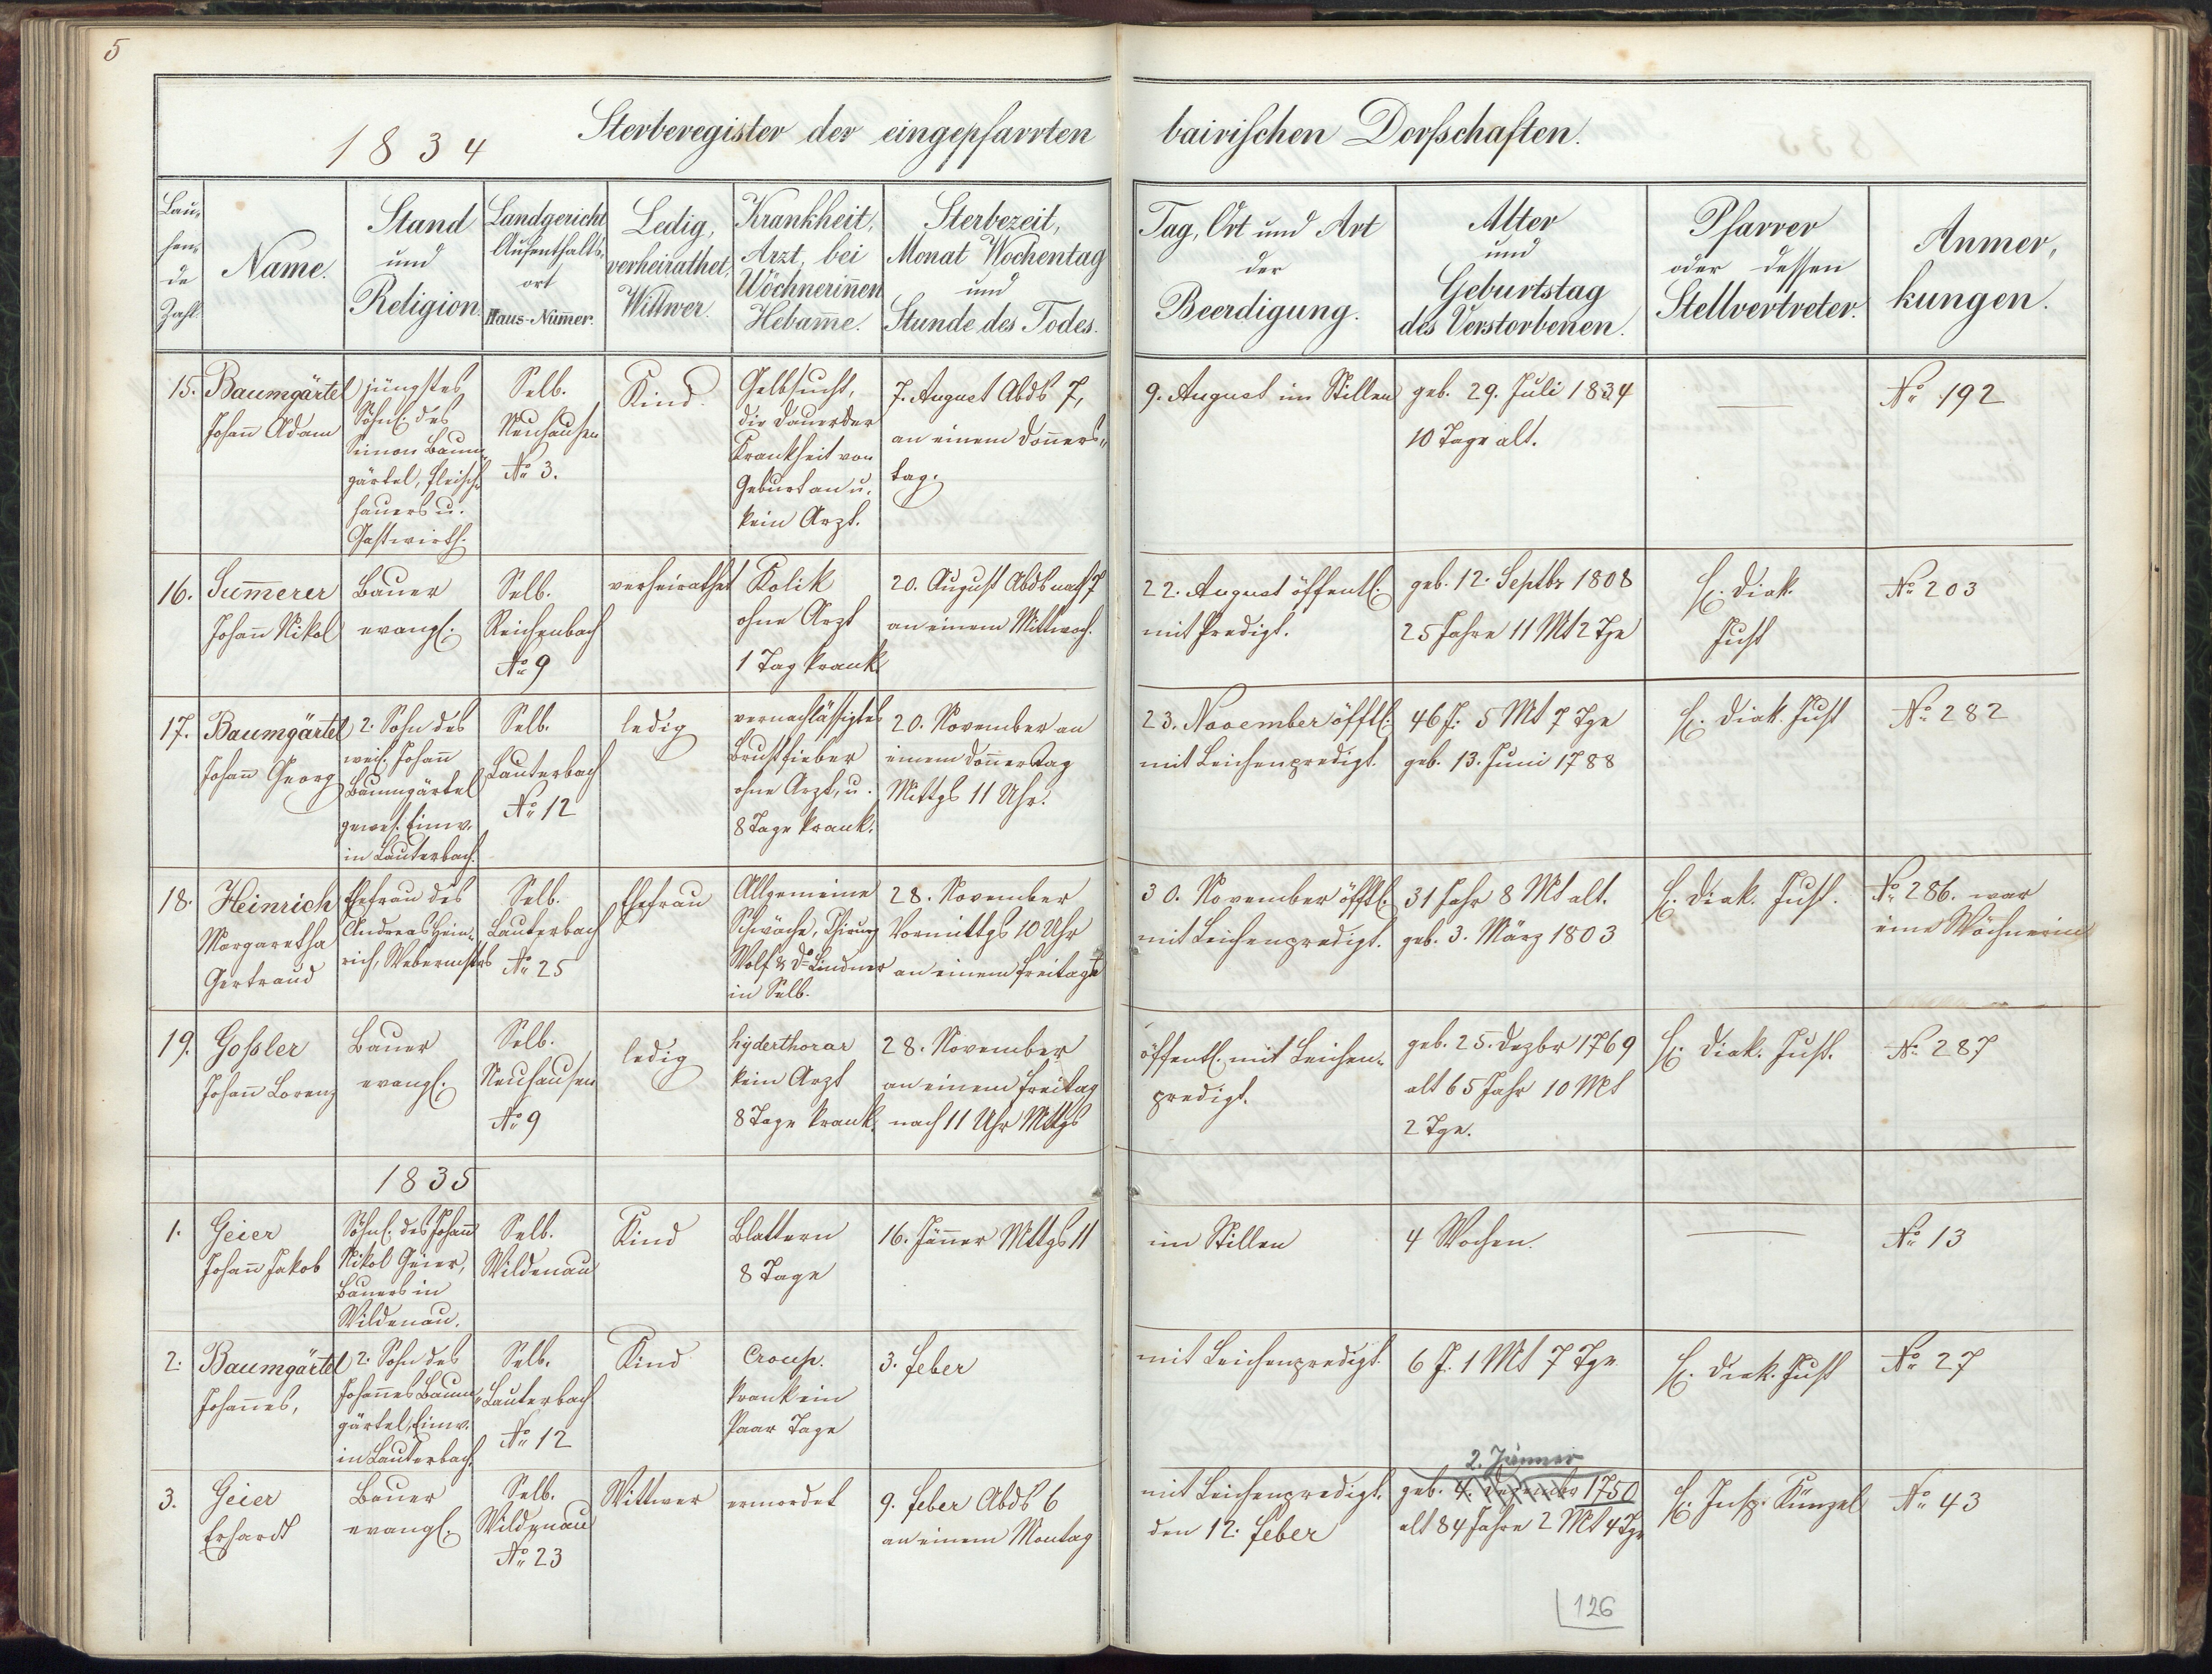 5
1834
Sterberegister der eingepfarrten bairischen Dorfschaften.
Lau-
fen-
de
Zahl.
Name.
Stand
und
Religion.
Landgericht,
Aufenthalts-
ort
Haus-Num̄er.
Ledig,
verheirathet,
Wittwer.
Krankheit,
Arzt, bei
Wöchnerin̄en
Hebam̄e.
Sterbezeit,
Monat Wochentag
und
Stunde des Todes.
Tag, Ort und Art
der
Beerdigung.
Alter
und
Geburtstag
des Verstorbenen.
Pfarrer
oder dessen
Stellvertreter.
Anmer-
kungen.
15.
Baumgärtel
Johan̄ Adam
jüngstes
Söhnl. des
Simon Baum-
gärtel, Fleisch-
hauers u.
Gastwirth.
Selb.
Neuhausen
No 3.
Kind.
Gelbsucht,
die Dauer der
Krankheit von
Geburt an u.
kein Arzt.
7. August Abds 7,
an einem Don̄ers-
tag.
9. August im Stillen
geb. 29. Juli 1834
10 Tage alt.
No 192
16.
Sum̄erer
Johan̄ Nikol
Bauer
evangl.
Selb.
Reichenbach
No 9
verheirathet
Kolik
ohne Arzt
1 Tag krank.
20. August Abds nach 7
an einem Mittwoch.
22. August öffentl.
mit Predigt.
geb. 12. Septbr 1808
25 Jahre 11 Mt 2 Tge
H. Diak.
Just
No 203
17.
Baumgärtel
Johan̄ Georg
2. Sohn des
weil. Johan̄
Baumgärtel
gewes. Einw.
in Lauterbach.
Selb.
Lauterbach
No 12
ledig
vernachlässigtes
Brustfieber
ohne Arzt, u.
8 Tage krank.
20. November an
einem Don̄ertag
Mittgs 11 Uhr.
23. November öfftl.
mit Leichenpredigt.
46 J. 5 Mt 7 Tge
geb. 13. Juni 1788
H. Diak. Just
No 282
18.
Heinrich
Margaretha
Gertraud
Ehefrau des
Andreas Hein-
rich, Webermstrs
Selb.
Lauterbach
No 25
Ehefrau
Allgemeine
Schwäche, Chirurg
Wolf & Dr Lindner
in Selb.
28. November
Vormittgs 10 Uhr
an einem Freitage
30. November öfftl.
mit Leichenpredigt.
31 Jahr 8 Mt alt.
geb. 3. März 1803
H. Diak. Just.
No 286. war
eine Wöchnerin
19.
Gossler
Johan̄ Lorenz
Bauer
evangl.
Selb.
Neuhausen
No 9
ledig
hyderthorax
kein Arzt
8 Tage krank.
28. November
an einem Freitag
nach 11 Uhr Mttgs
öffentl. mit Leichen-
predigt.
geb. 25. Dezbr 1769
alt 65 Jahr 10 Mt
2 Tge.
H. Diak. Just.
No 287
1835
1.
Geier
Johan̄ Jakob
Söhnl. des Johan̄
Nikol Geier,
Bauers in
Wildenau.
Selb.
Wildenau
Kind
Blattern
8 Tage
16. Jän̄er Mttgs 11
im Stillen
4 Wochen.
No 13
2.
Baumgärtel
Johan̄es,
2. Sohn des
Johan̄es Baum-
gärtel, Einw.
in Lauterbach.
Selb.
Lauterbach
No 12
Kind
Croup.
krank ein
Paar Tage
3. Feber
mit Leichenpredigt.
6 J. 1 Mt 7 Tge
H. Diak. Just
No 27
3.
Geier
Erhardt
Bauer
evangl.
Selb.
Wildenau
No 23
Wittwer
ermordet
9. Feber Abds 6
an einem Montag
mit Leichenpredigt.
den 12. Feber
2. Jänner
geb. 4. Dezember 1750
alt 84 Jahre 2 Mt 4 Tge
H. Insp. Künzel
No 43
126